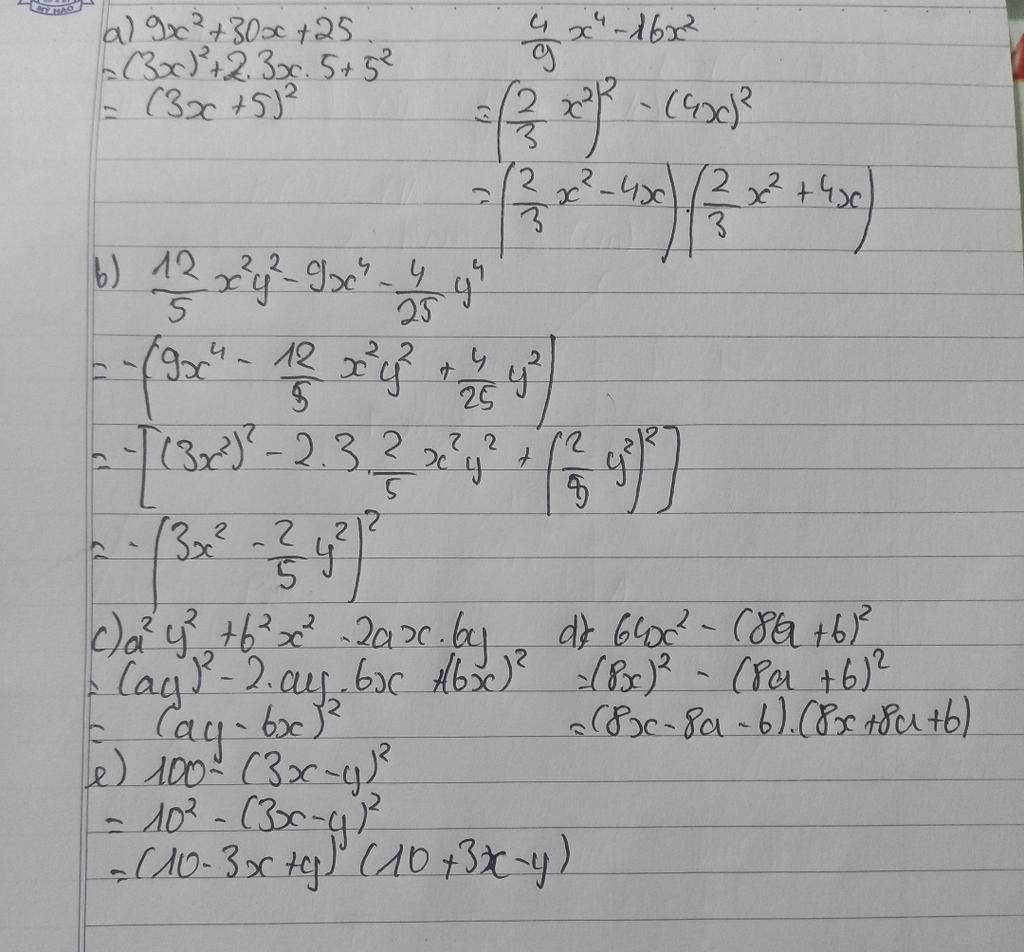 MỸ HÀO
a) 9x² + 30x + 25.
= (3x)² + 2.3x.5 + 5²
= (3x + 5)²
4/9 x⁴ - 16x²
= (2/3 x²)² - (4x)²
= (2/3 x² - 4x).(2/3 x² + 4x)
b) 12/5 x²y² - 9x⁴ - 4/25 y⁴
= -(9x⁴ - 12/5 x²y² + 4/25 y²)
= -[(3x²)² - 2.3.2/5 x²y² + (2/5 y²)²]
= -(3x² - 2/5 y²)²
c) a²y² + b²x² - 2ax.by
= (ay)² - 2.ay.bx + (bx)²
= (ay - bx)²
d) 64x² - (8a + b)²
= (8x)² - (8a + b)²
= (8x - 8a - b).(8x + 8a + b)
e) 100 - (3x - y)²
= 10² - (3x - y)²
= (10 - 3x + y) (10 + 3x - y)